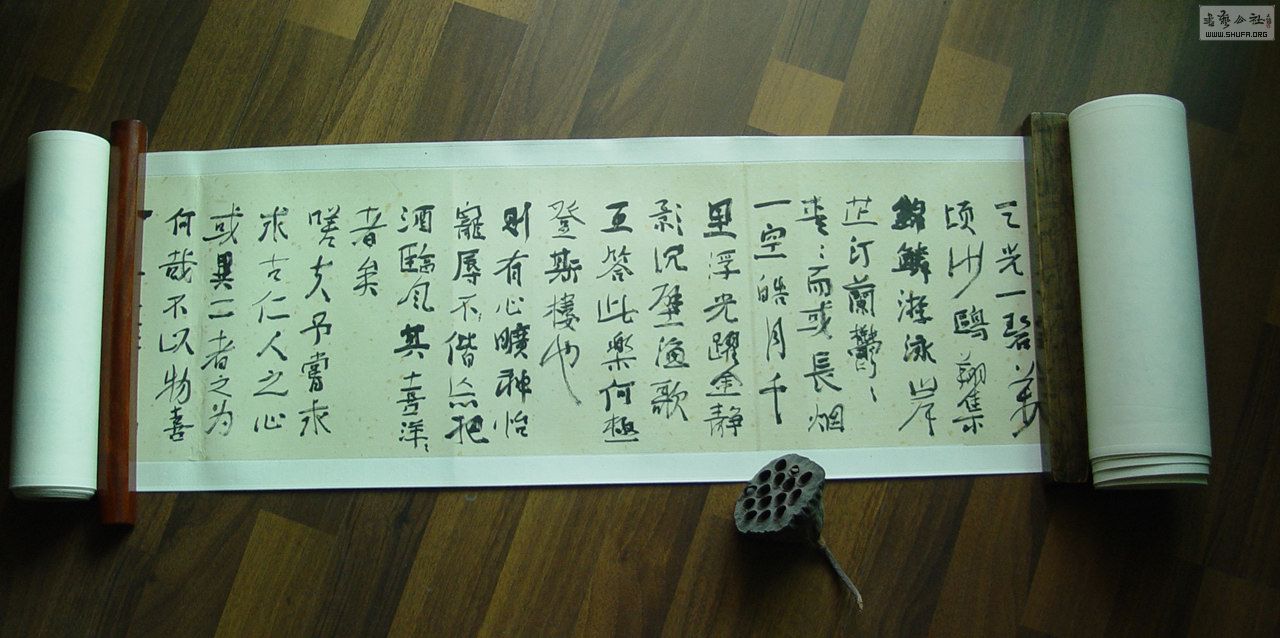 天光一碧萬
頃沙鷗翔集
錦鱗游泳岸
芷汀蘭鬱〻
青〻而或長烟
一空皓月千
里浮光躍金靜
影沉壁漁歌
互答此樂何極
登斯樓也
則有心曠神怡
寵辱不偕忘把
酒臨風其喜洋〻
者矣
嗟夫予嘗求
求古仁人之心
或異二者之为
何哉不以物喜
书艺公社
WWW.SHUFA.ORG